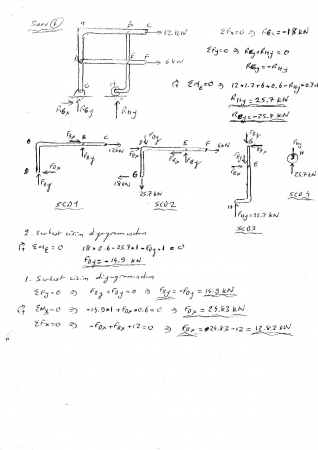 Soru 1
A B C
12 kN
D E F
6 kN
G H
RGx RGy RHy
ΣFx=0 ⇒ RGx = -18 kN
ΣFy=0 ⇒ RGy+RHy = 0
RGy = -RHy
ΣMG=0 ⇒ 12*1.7+6*0.6-RHy*0.7
RHy = 25.7 kN
RGy = -25.7 kN
A B C
FBx
FBy
12 kN
D
FDx
FDy
SCD1
FDy
FDx
E F
6 kN
FEx
FEy
G
18 kN
25.7 kN
SCD2
FBy
FBx
FEy
FEx
E
H
RHy=25.7 kN
SCD3
H
25.7 kN
SCD4
2. Serbest cisim diyagramından
ΣME=0 18*0.6-25.7*1+FDy*1 = 0
FDy = -14.9 kN
1. Serbest cisim diyagramından
ΣFy=0 ⇒ FBy+FDy=0 ⇒ FBy=-FDy = 14.9 kN
ΣMB=0 ⇒ -14.9*1+FDx*0.6=0 ⇒ FDx = 24.83 kN
ΣFx=0 ⇒ -FDx+FBx+12=0 ⇒ FBx=24.83-12 = 12.83 kN